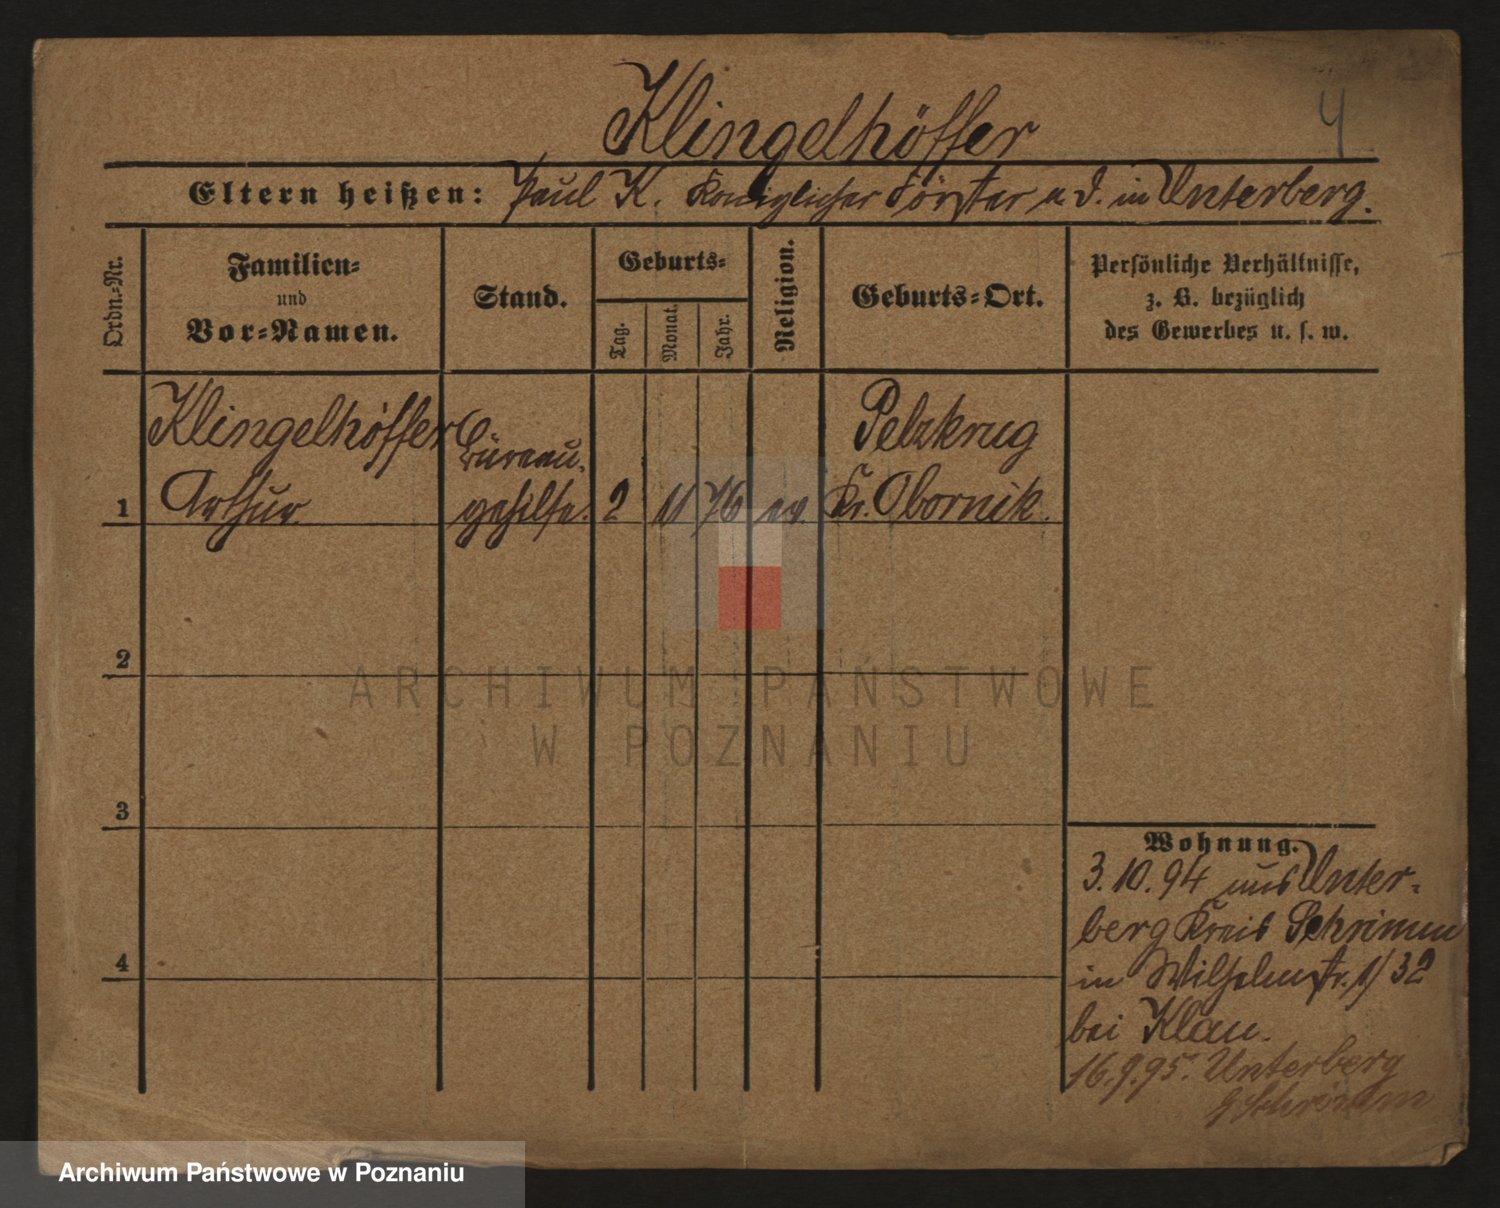 Klingelhöffer
4
Eltern heißen: Paul K. Königlicher Förster a. D. in Unterberg.
Ordn.=Nr.
Familien=
und
Vor=Namen.
Stand.
Geburts=
Tag.
Monat.
Jahr.
Religion.
Geburts=Ort.
Persönliche Verhältnisse,
z. B. bezüglich
des Gewerbes u. s. w.
Klingelhöffer Büreau- Pelzkrug
1 Arthur. gehilfe. 2 11 76 ev. Kr. Obornik.
2
ARCHIWUM PAŃSTWOWE
W POZNANIU
3
Wohnung.
3.10.94 aus Unter-
berg Kreis Schrimm
4
in Wilhelmstr. 1/32
bei Klau.
16.9.95. Unterberg
Schrimm
Archiwum Państwowe w Poznaniu